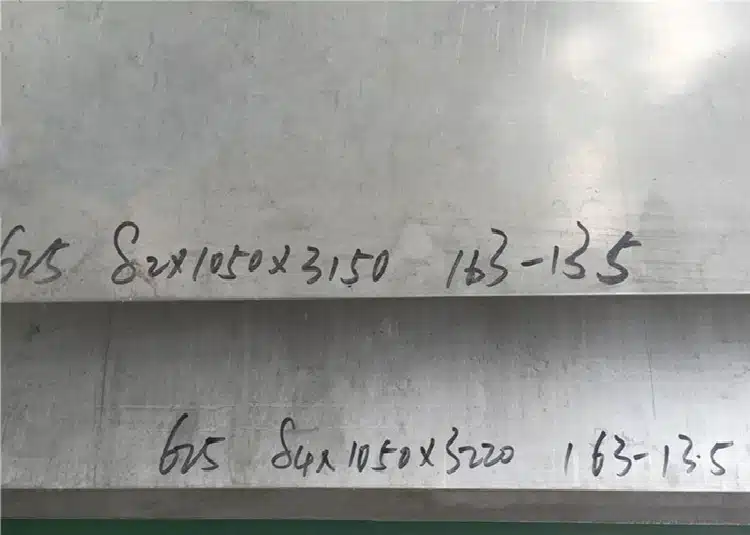 625 δ2×1050×3150 163-13.5
625 δ4×1050×3220 163-13.5